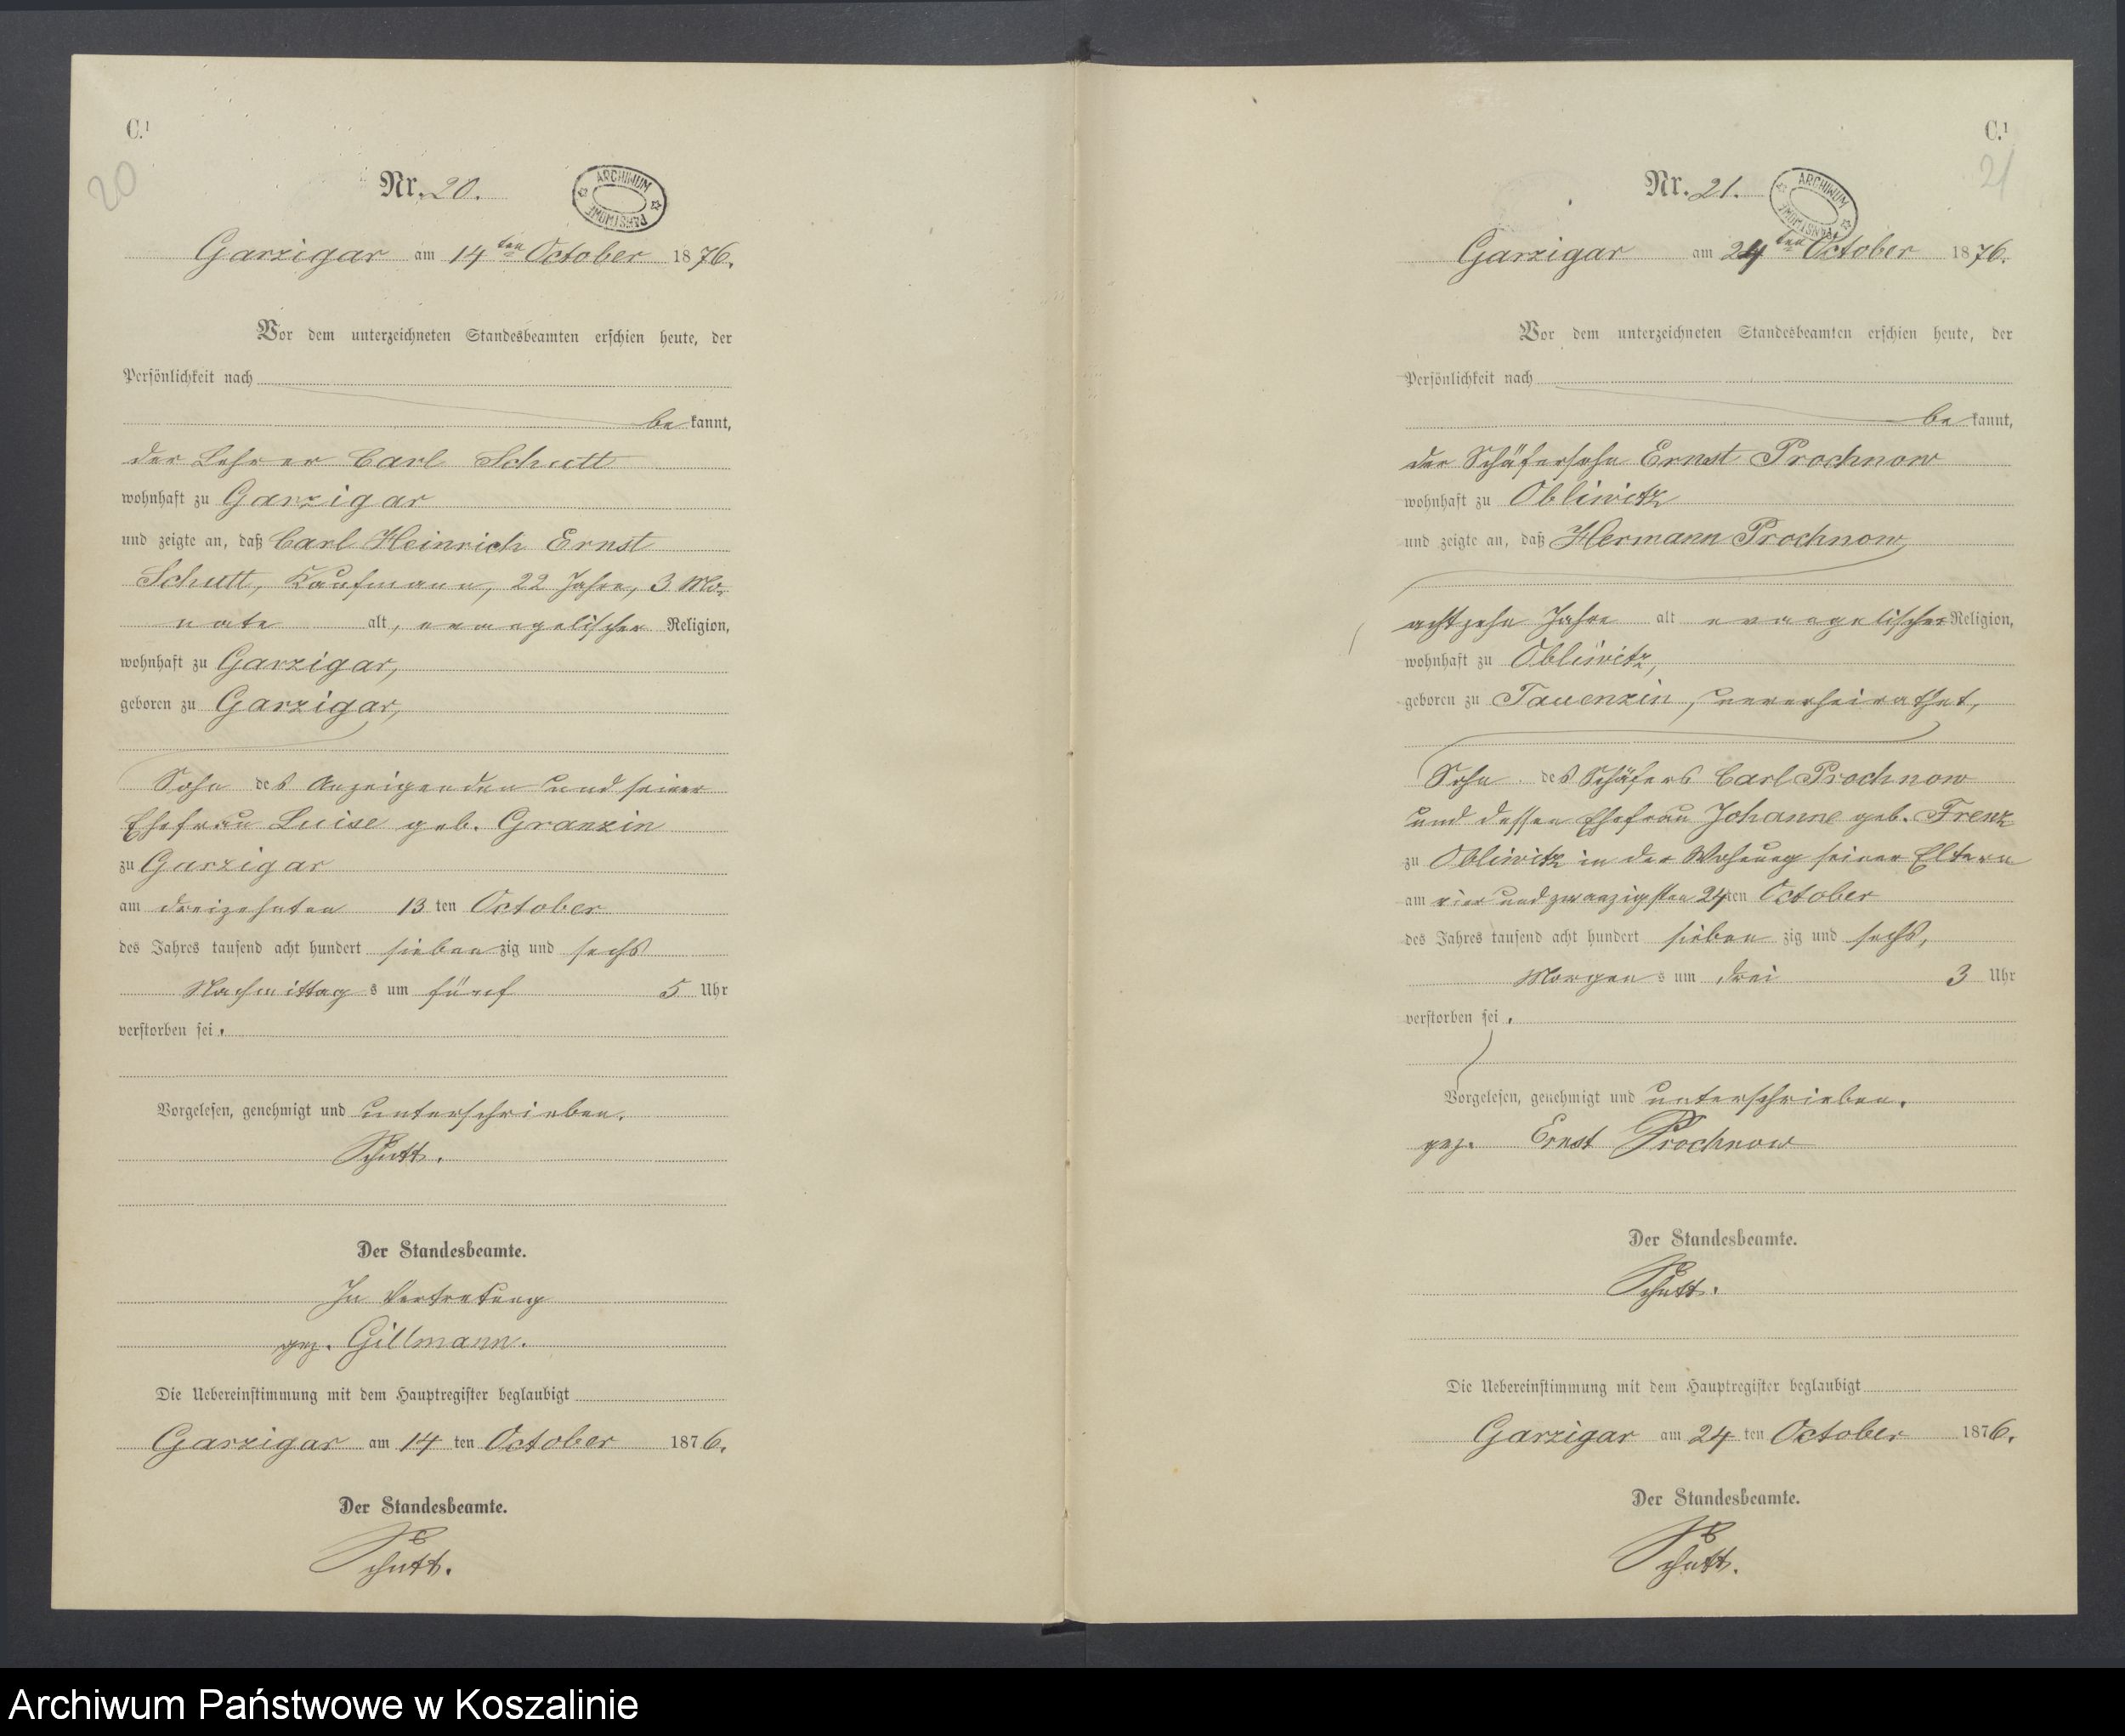 C.¹
20
Nr. 20.
ARCHIWUM PAŃSTWOWE
Garzigar am 14ten October 1876.
Vor dem unterzeichneten Standesbeamten erschien heute, der
Persönlichkeit nach
bekannt,
der Lehrer Carl Schutt
wohnhaft zu Garzigar
und zeigte an, daß Carl Heinrich Ernst
Schutt, Kaufmann, 22 Jahre, 3 Mo-
nate alt, evangelischer Religion,
wohnhaft zu Garzigar,
geboren zu Garzigar,
Sohn des Anzeigenden und seiner
Ehefrau Luise geb. Granzin
zu Garzigar
am dreizehnten 13ten October
des Jahres tausend acht hundert siebenzig und sechs
Nachmittags um fünf 5 Uhr
verstorben sei.
Vorgelesen, genehmigt und unterschrieben.
Schutt.
Der Standesbeamte.
In Vertretung
gez. Gillmann.
Die Uebereinstimmung mit dem Hauptregister beglaubigt
Garzigar am 14ten October 1876.
Der Standesbeamte.
Schutt.
C.¹
21
Nr. 21.
ARCHIWUM PAŃSTWOWE
Garzigar am 24ten October 1876.
Vor dem unterzeichneten Standesbeamten erschien heute, der
Persönlichkeit nach
bekannt,
der Schäfersohn Ernst Prochnow
wohnhaft zu Obliwitz
und zeigte an, daß Hermann Prochnow,
achtzehn Jahre alt evangelischer Religion,
wohnhaft zu Obliwitz,
geboren zu Tauenzin, unverheirathet,
Sohn des Schäfers Carl Prochnow
und dessen Ehefrau Johanne geb. Frenz
zu Obliwitz in der Wohnung seiner Eltern
am vier und zwanzigsten 24ten October
des Jahres tausend acht hundert siebenzig und sechs,
Morgens um drei 3 Uhr
verstorben sei.
Vorgelesen, genehmigt und unterschrieben.
gez. Ernst Prochnow
Der Standesbeamte.
Schutt.
Die Uebereinstimmung mit dem Hauptregister beglaubigt
Garzigar am 24ten October 1876.
Der Standesbeamte.
Schutt.
Archiwum Państwowe w Koszalinie